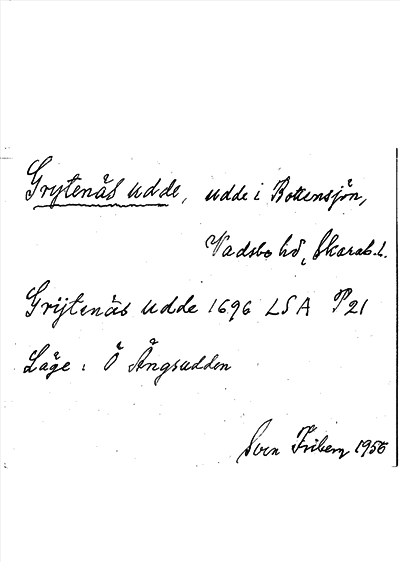 Grytenäs udde, udde i Bottensjön,
Vadsbo hd, Skarab.l.
Grijtenäs udde 1696 LSA P21
Läge: Ö Ängsudden
Sven Friberg 1956